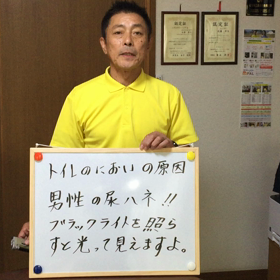 トイレのにおいの原因
男性の尿ハネ!!
ブラックライトを照ら
すと光って見えますよ。